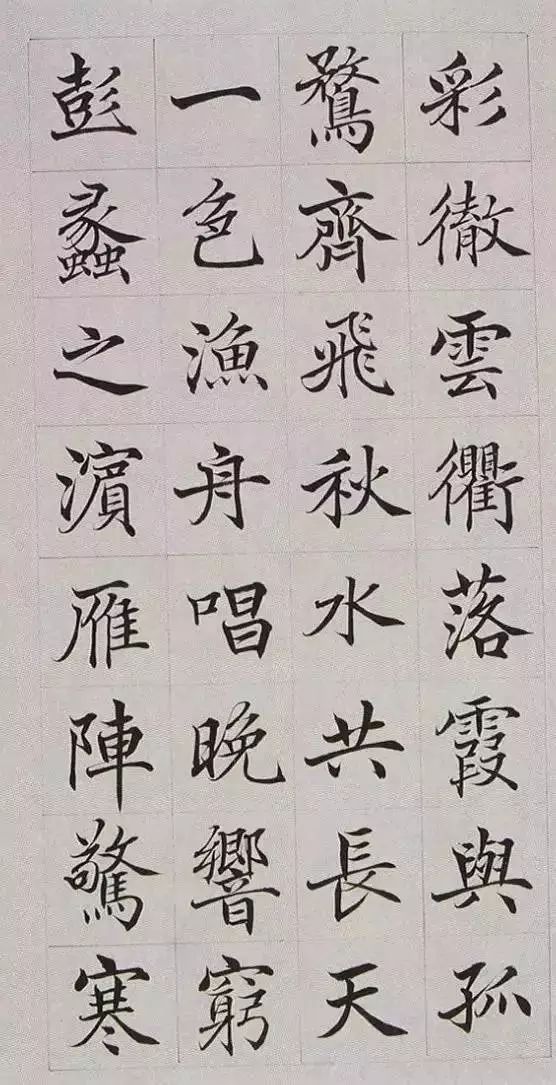 彩徹雲衢落霞與孤
鶩齊飛秋水共長天
一色漁舟唱晚響窮
彭蠡之濱雁陣驚寒